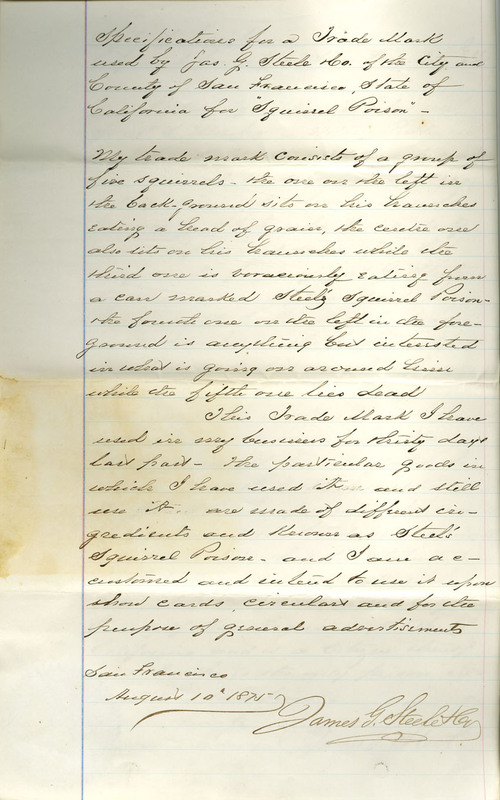 Specifications for a Trade Mark
used by Jas. G. Steele & Co. of the City and
County of San Francisco, State of
California for "Squirrel Poison" -
My trade mark consists of a group of
five squirrels - the one on the left in
the back-ground sits on his haunches
eating a head of grain, the centre one
also sits on his haunches while the
third one is voraciously eating from
a can marked Steele's Squirrel Poison -
the fourth one on the left in the fore-
ground is anything but interested
in what is going on around him
while the fifth one lies dead
This Trade Mark I have
used in my business for thirty days
last past - The particular goods in
which I have used it and still
use it are made of different in-
gredients and known as Steele's
Squirrel Poison - and I am ac-
customed and intend to use it upon
show cards, circulars and for the
purpose of general advertisements
San Francisco
August 10" 1875
James G. Steele & Co